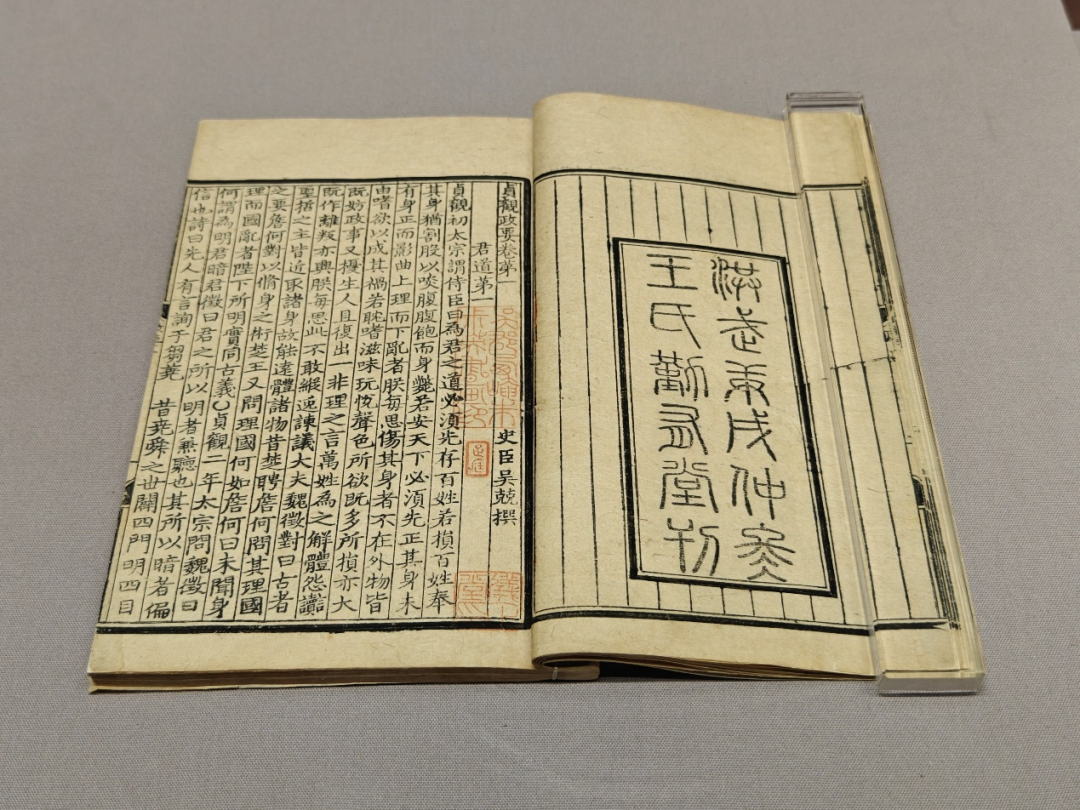 洪武庚戌仲冬
王氏勤有堂刊
貞觀政要卷第一
史臣吳兢撰
君道第一
貞觀初太宗謂侍臣曰為君之道必須先存百姓若損百姓奉
其身猶割股以啖腹腹飽而身斃君安天下必須先正其身未
有身正而影曲上理而下亂者朕每思傷其身者不在外物皆
由嗜欲以成其禍若耽嗜滋味玩恱聲色所欲既多所損亦大
既妨政事又擾生人且復出一非理之言萬姓為之解體怨讟
既作離叛亦興朕每思此不敢縱逸諫議大夫魏徵對曰古者
聖哲之主皆近取諸身故能遠體諸物昔楚聘詹何問其理國
之要詹何對以脩身之術楚王又問理國何如詹何曰未聞身
理而國亂者陛下所明實同古義〇貞觀二年太宗問魏徵曰
何謂為明君暗君徵曰君之所以明者兼聽也其所以暗者偏
信也詩曰先人有言詢于芻蕘　昔堯舜之世闢四門明四目